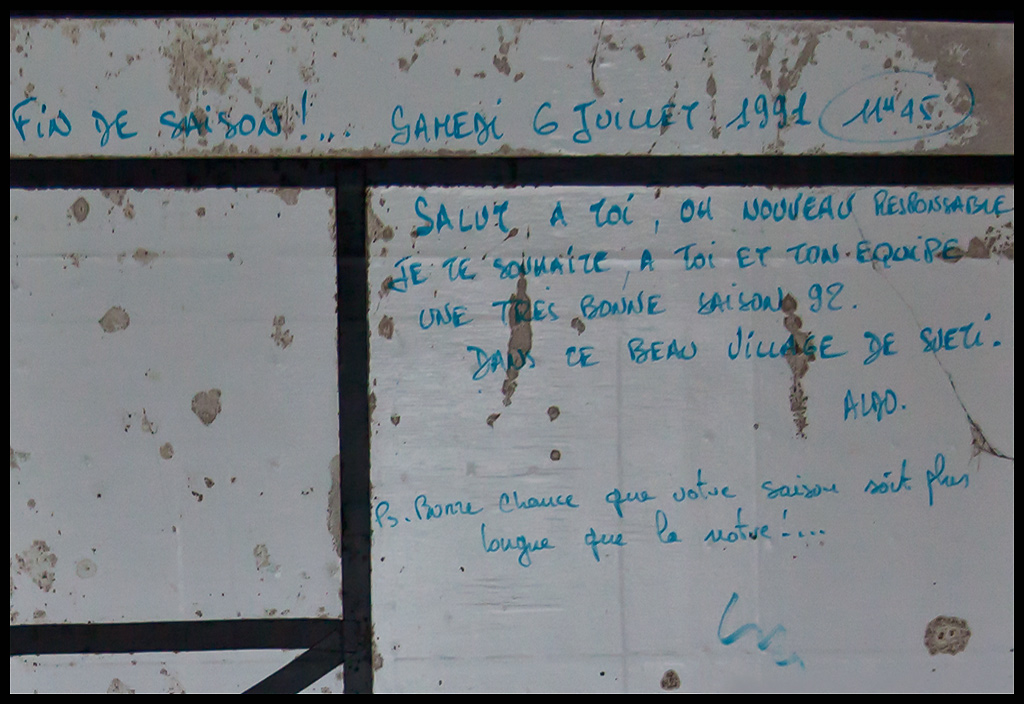 FiN DE SAiSON !... SAMEDi 6 JUiLLET 1991 11H45
SALUT, A TOi, OH NOUVEAU RESPONSABLE
JE TE SOUHAITE, A TOi ET TON EQUIPE
UNE TRES BONNE SAISON 92.
DANS CE BEAU ViLLAGE DE SVETi.
ALDO.
Ps. Bonne chance que votre saison soit plus
longue que la notre !....